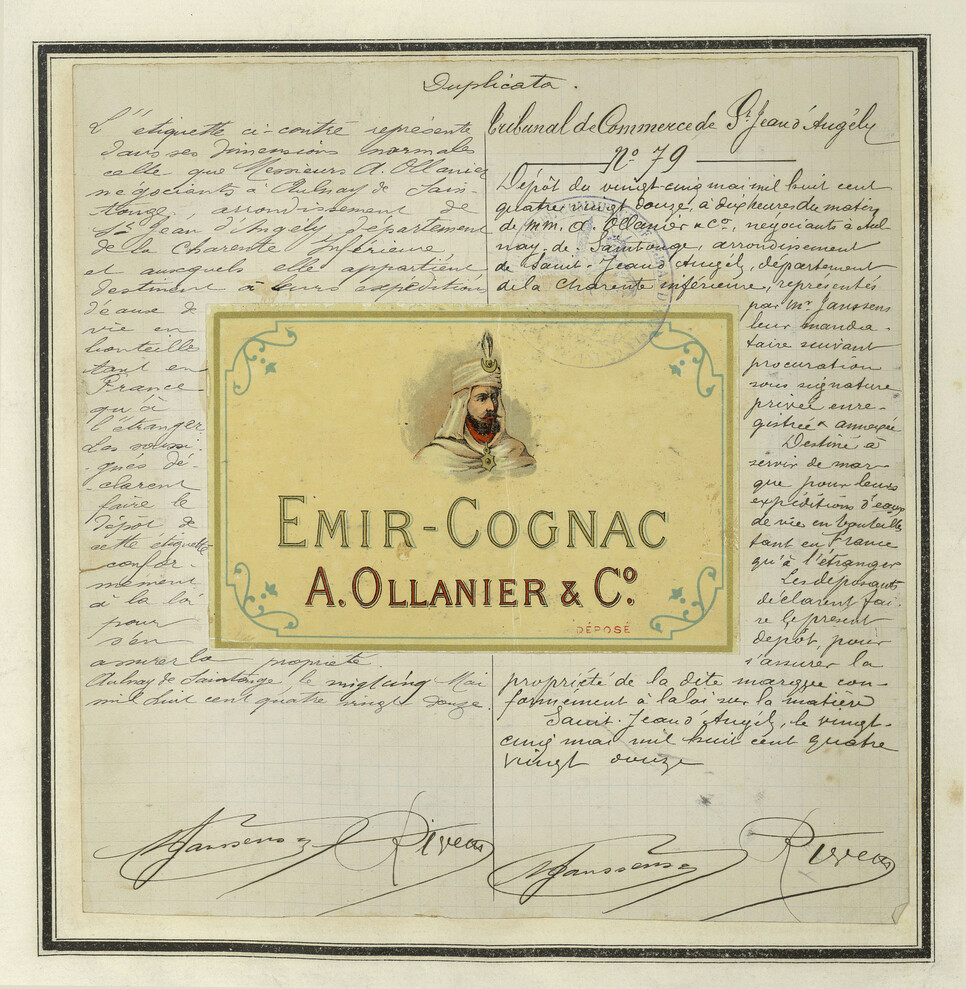 Duplicata.
L'étiquette ci-contre représente
dans ses dimensions normales
celle que Messieurs A. Ollanier
négociants à Aulnay de Sain-
tonge, arrondissement de
St Jean d'Angély, département
de la Charente Inférieure
et auxquels elle appartient
destinent à leurs expéditions
d'eaux de
vie en
bouteilles
tant en
France
qu'à
l'étranger
Les soussi-
gnés dé-
clarent
faire le
dépôt de
cette étiquette
confor-
mément
à la loi
pour
s'en
assurer la propriété.
Aulnay de Saintonge le vingt cinq Mai
mil huit cent quatre vingt douze.
Janssens Rivea
Tribunal de Commerce de St Jean d'Angély
No 79
Dépôt du vingt-cinq mai mil huit cent
quatre vingt douze, à dix heures du matin
de MM. A. Ollanier & Co, négociants à Aul-
nay-de-Saintonge, arrondissement
de Saint-Jean d'Angély, département
de la Charente inférieure, représentés
par Mr Janssens
leur manda-
taire suivant
procuration
sous signature
privée enre-
gistrée & annexée
Destiné à
servir de mar-
que pour leurs
expéditions d'eaux
de vie en bouteilles
tant en France
qu'à l'étranger
Les déposants
déclarent fai-
re le présent
dépôt, pour
s'assurer la
propriété de la dite marque con-
formément à la loi sur la matière
Saint-Jean d'Angély, le vingt-
cinq mai mil huit cent quatre
vingt douze
Janssens Rivea
EMIR-COGNAC
A. OLLANIER & Co.
DÉPOSÉ